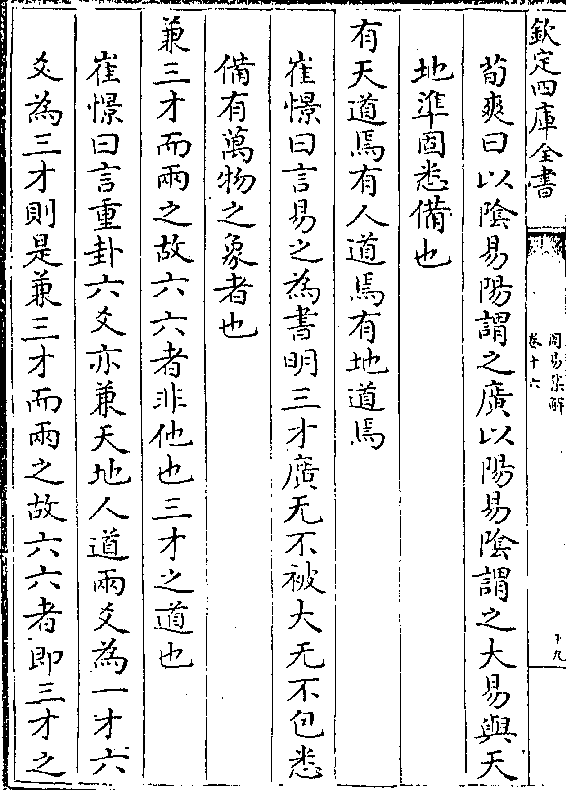 欽定四庫全書
周易集解
卷十六
十九
荀爽曰以陰易陽謂之廣以陽易陰謂之大易與天
地準固悉備也
有天道焉有人道焉有地道焉
崔憬曰言易之為書明三才廣无不被大无不包悉
備有萬物之象者也
兼三才而兩之故六六者非他也三才之道也
崔憬曰言重卦六爻亦兼天地人道兩爻為一才六
爻為三才則是兼三才而兩之故六六者即三才之